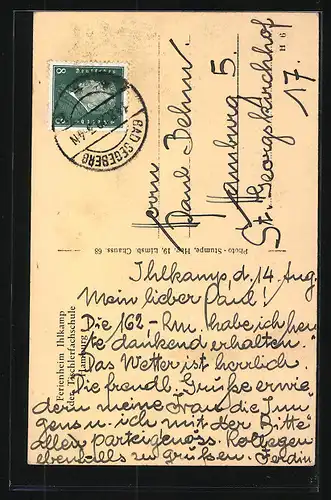 Ferienheim Ihlkamp
der Tischlerfachschule
Hamburg
Photo-Stumpe, Hbg. 19, Eimsb. Chauss. 68
H 6
8
Deutsches
Reich
8
BAD SEGEBERG
Herrn
Paul Behm
Hamburg 5.
St. Georgskirchhof
17.
Ihlkamp, d. 14 Aug.
Mein lieber Paul!
Die 162,- Rm. habe ich heu
te dankend erhalten.
Das Wetter ist herrlich.
Die freundl. Grüße erwie
dern meine Frau die Jun
gens u. ich mit der Bitte
allen parteigenöss. Kollegen
ebenfalls zu grüßen. Ferdin